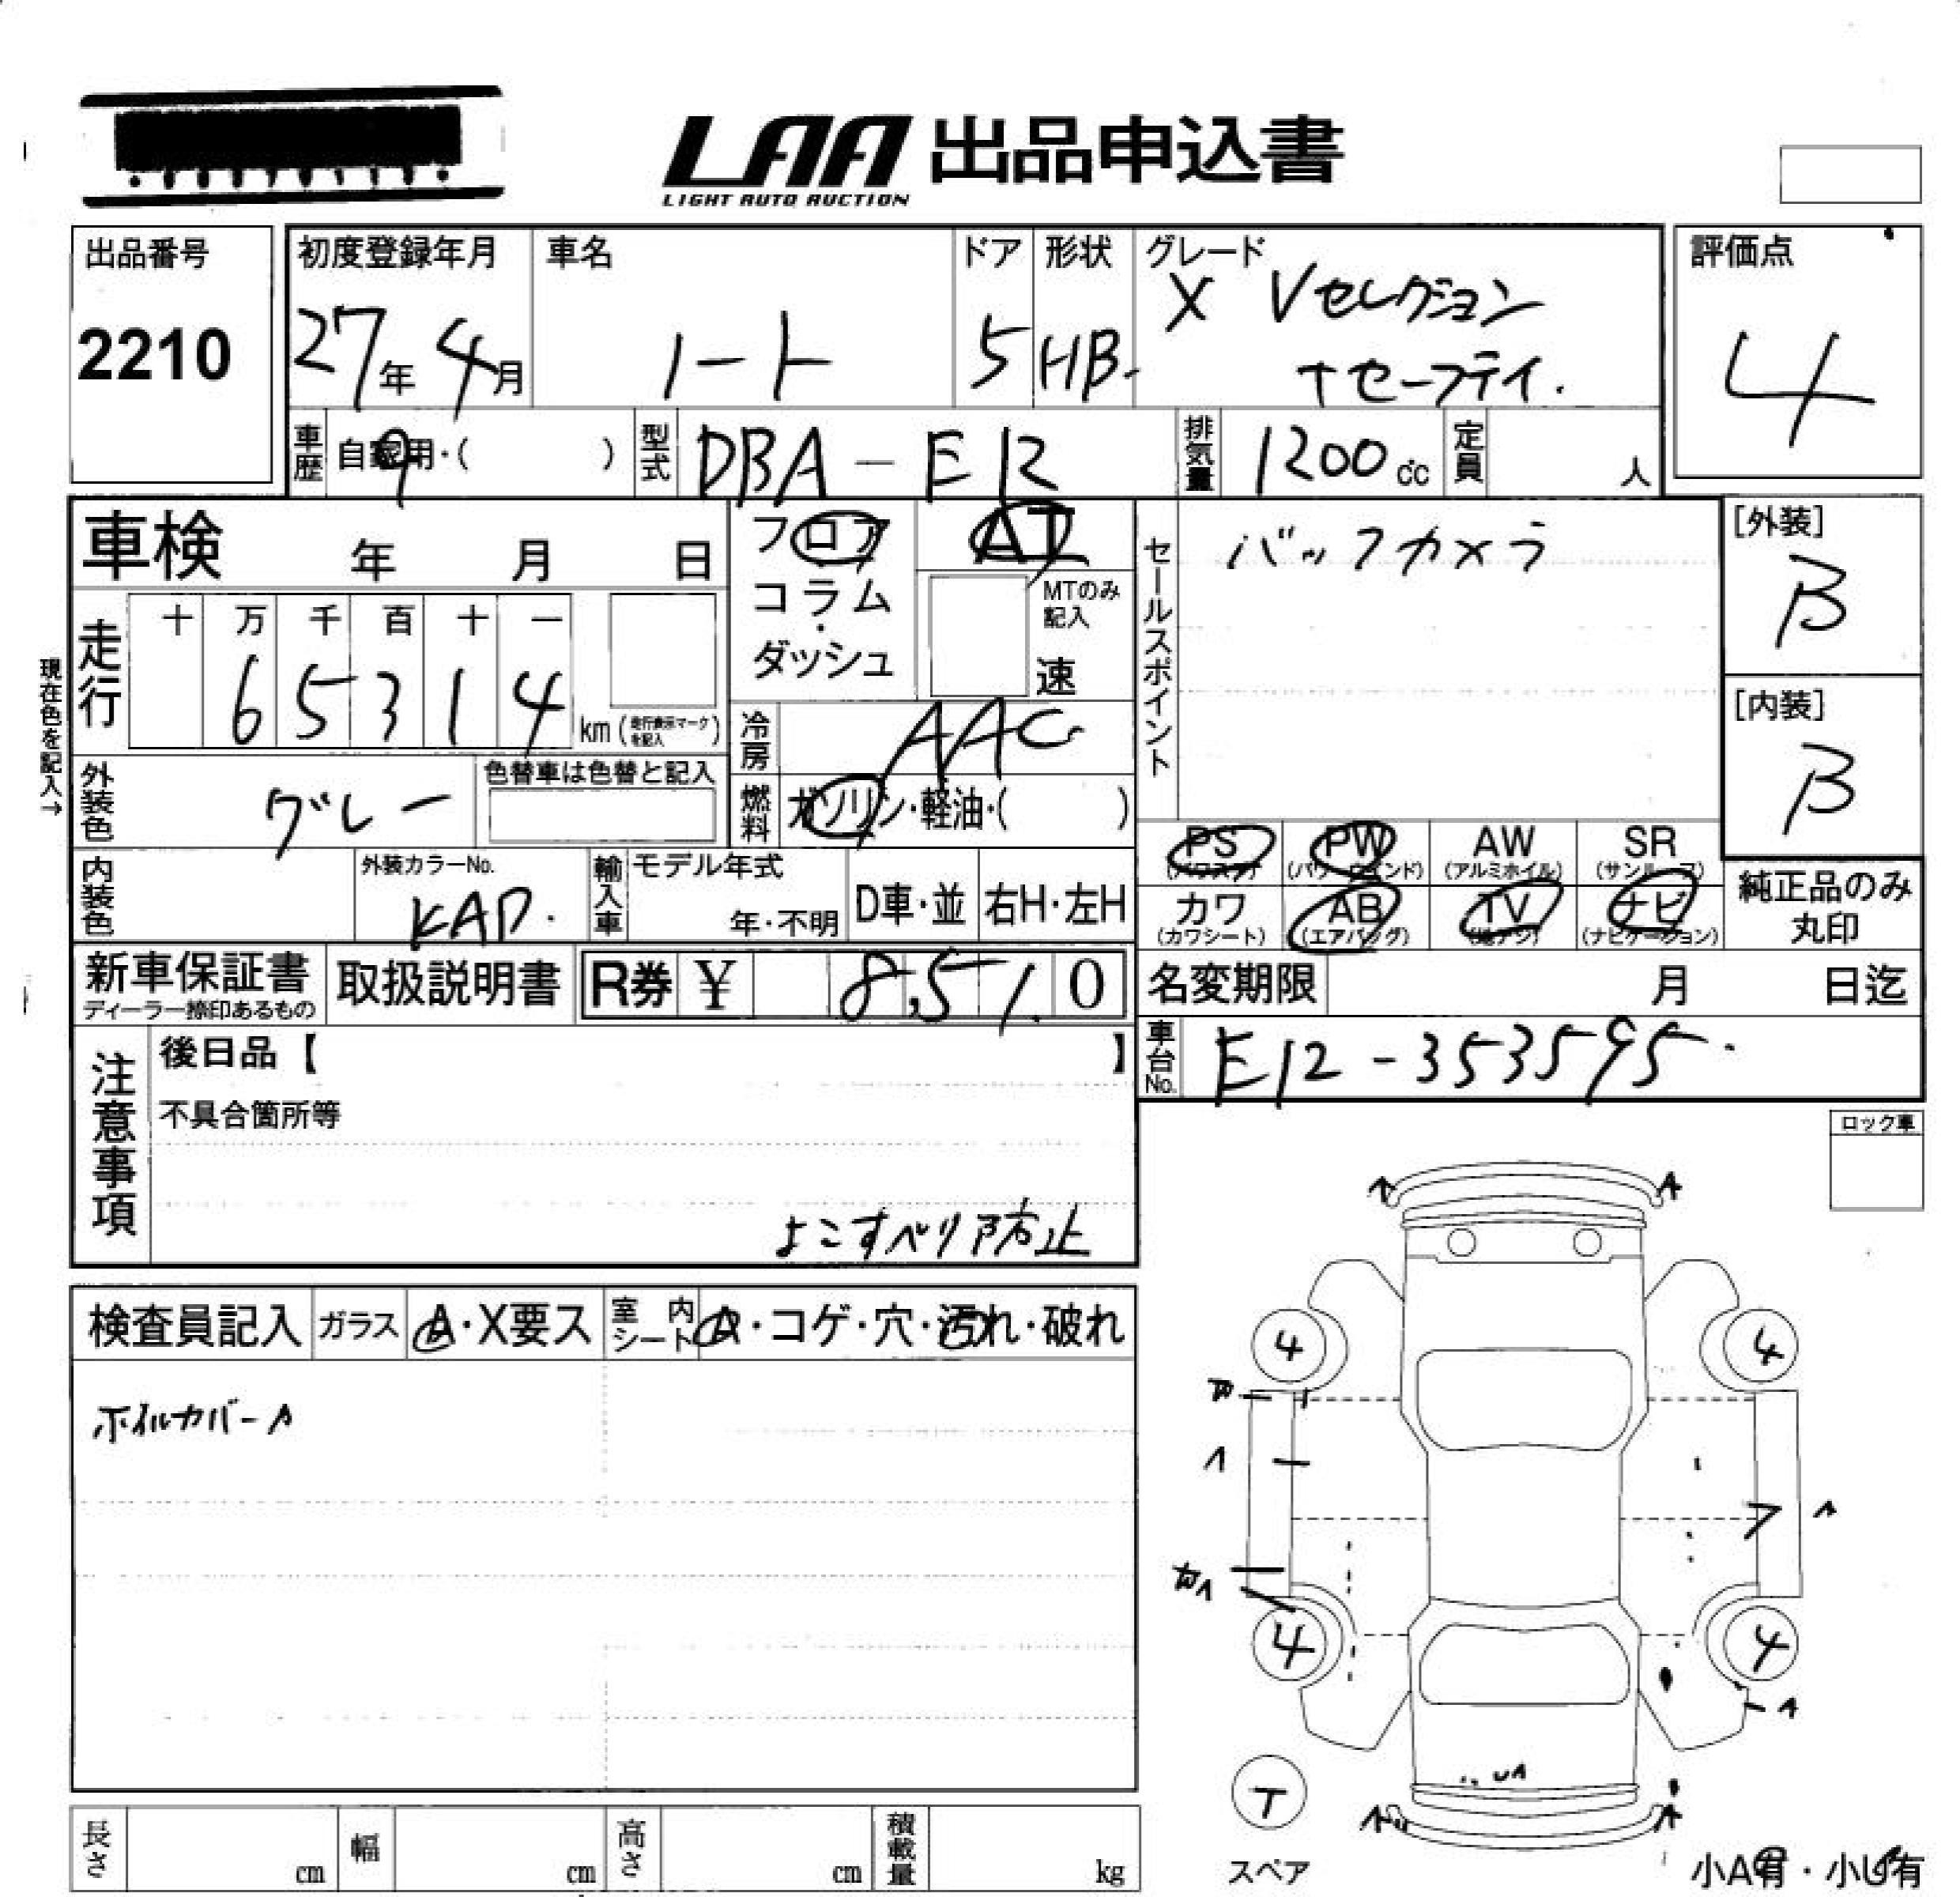 LAA 出品申込書
LIGHT AUTO AUCTION
出品番号
2210
初度登録年月
27年 4月
車名
ノート
ドア
5
形状
HB.
グレード
X Vセレクション
+セーフティ.
評価点
4
車歴
自家用・( )
型式
DBA-E12
排気量
1200cc
定員
人
車検 年 月 日
フロア
コラム
・
ダッシュ
AT
MTのみ
記入
速
セールスポイント
バックカメラ
[外装]
B
[内装]
B
現在色を記入→
走行
十 万 千 百 十 一
6 5 3 1 4
km (走行表示マークを記入)
冷房
AAC
外装色
グレー
色替車は色替と記入
燃料
ガソリン・軽油・( )
PS (パワステ)
PW (パワーウインド)
AW (アルミホイル)
SR (サンルーフ)
カワ (カワシート)
AB (エアバッグ)
TV (地デジ)
ナビ (ナビゲーション)
純正品のみ
丸印
内装色
外装カラーNo.
KAD.
輸入車
モデル年式
年・不明
D車・並
右H・左H
新車保証書
ディーラー捺印あるもの
取扱説明書
R券 ¥ 8,510
名変期限 月 日迄
車台No.
E12-353595
注意事項
後日品【 】
不具合箇所等
よこすべり防止
ロック車
検査員記入
ガラス
A・X要ス
室内シート
A・コゲ・穴・汚れ・破れ
ホイルカバーA
A A
4 4
A
A
カA
4 4
A
UA
A A
T
スペア
小A有・小U有
長さ cm
幅 cm
高さ cm
積載量 kg